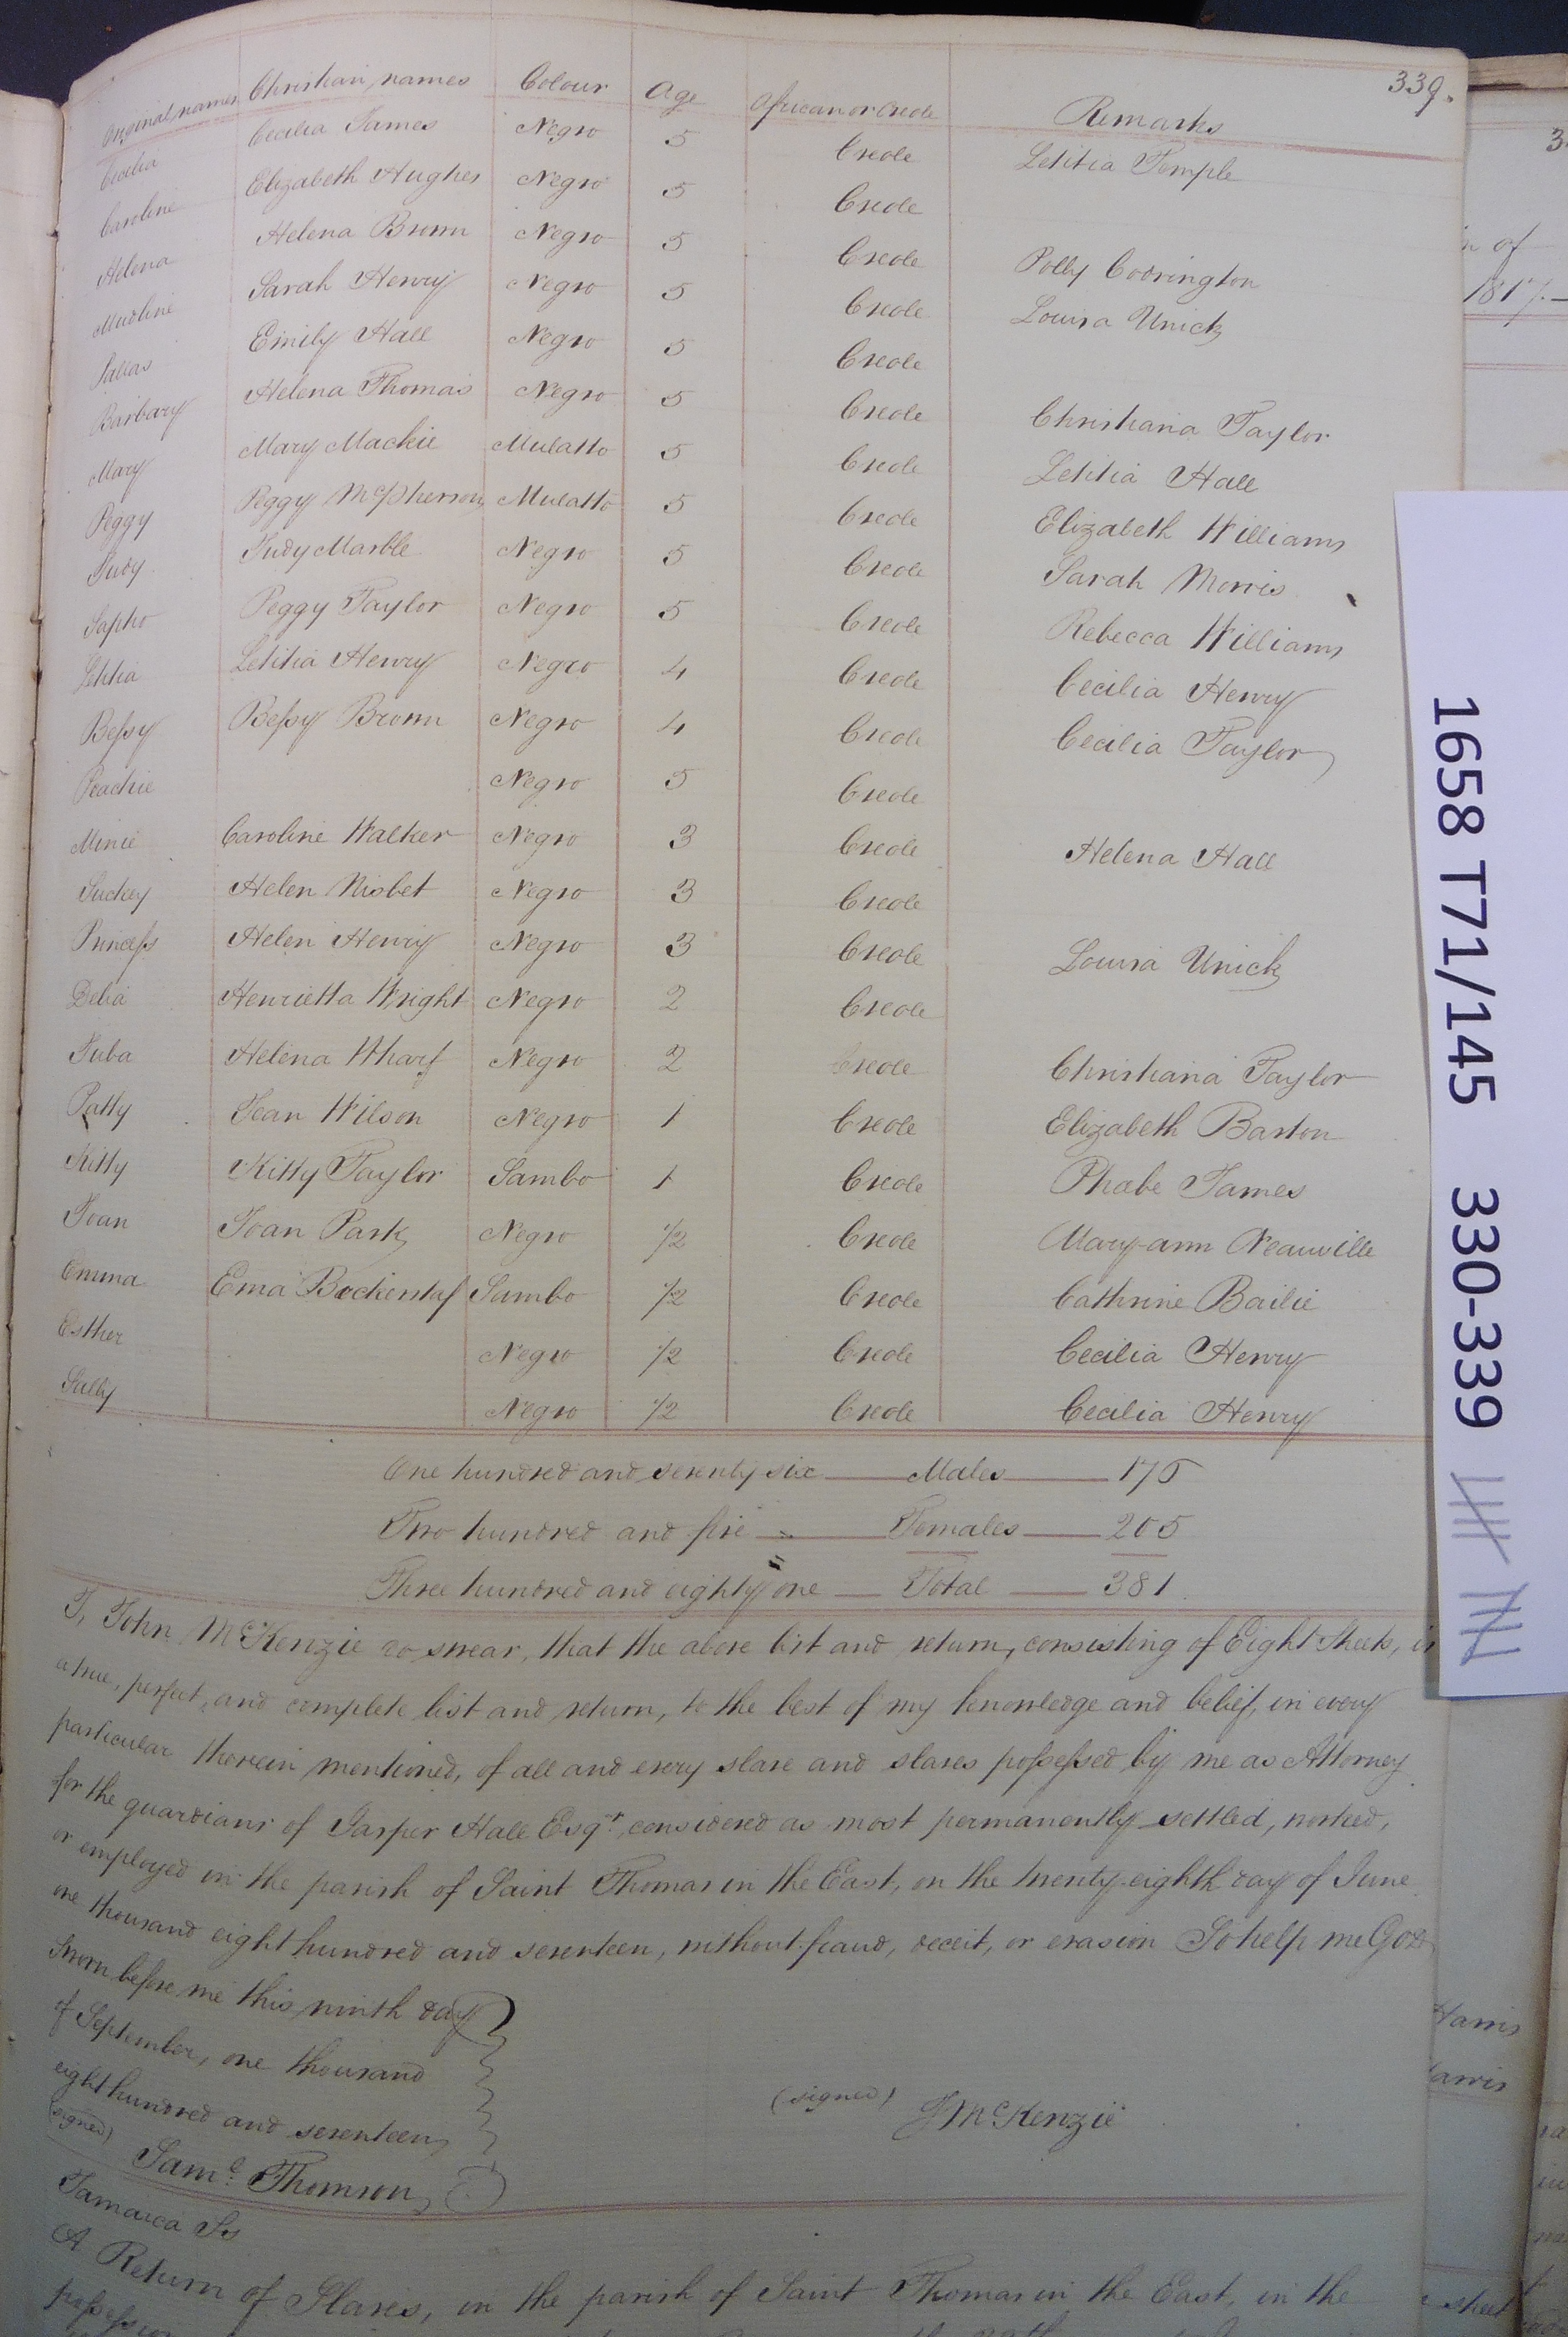 339.
Original names Christian names Colour Age African or Creole Remarks
Cecilia Cecilia James Negro 5 Creole Letitia Temple
Caroline Elizabeth Hughes Negro 5 Creole
Helena Helena Brown Negro 5 Creole Polly Codrington
Sarah Henry Negro 5 Creole Louisa Unick
Pallas Emily Hall Negro 5 Creole
Barbary Helena Thomas Negro 5 Creole Christiana Taylor
Mary Mary Mackie Mulatto 5 Creole Letitia Hall
Peggy Peggy McPherson Mulatto 5 Creole Elizabeth Williams
Judy Judy Marble Negro 5 Creole Sarah Morris
Sapho Peggy Taylor Negro 5 Creole Rebecca Williams
Letitia Letitia Henry Negro 4 Creole Cecilia Henry
Bessy Bessy Brown Negro 4 Creole Cecilia Taylor
Peachie Negro 5 Creole
Minie Caroline Walker Negro 3 Creole Helena Hall
Suckey Helen Nisbet Negro 3 Creole
Princess Helen Henry Negro 3 Creole Louisa Unick
Delia Henrietta Wright Negro 2 Creole
Juba Helena Wharf Negro 2 Creole Christiana Taylor
Patty Jean Wilson Negro 1 Creole Elizabeth Barton
Kitty Kitty Taylor Sambo 1 Creole Phœbe James
Joan Joan Park Negro 1/2 Creole Mary-ann Neauville
Emma Ema Sambo 1/2 Creole Cathrine Bailie
Esther Negro 1/2 Creole Cecilia Henry
Sally Negro 1/2 Creole Cecilia Henry
One hundred and seventy six Males 176
Two hundred and five Females 205
Three hundred and eighty one Total 381
I, John McKenzie do swear, that the above list and return, consisting of Eight Sheets, is
a true, perfect, and complete list and return, to the best of my knowledge and belief, in every
particular therein mentioned, of all and every slave and slaves possessed by me as Attorney
for the guardians of Jasper Hall Esqr. considered as most permanently settled, worked,
or employed in the parish of Saint Thomas in the East, on the twenty-eighth day of June
one thousand eight hundred and seventeen, without fraud, deceit, or evasion So help me God
Sworn before me this ninth day
of September, one thousand
eight hundred and seventeen
(signed) Saml. Thomson
(signed) J McKenzie
Jamaica Ss
A Return of Slaves, in the parish of Saint Thomas in the East, in the
1658 T71/145 330-339
of
1817.
Harris
sheet